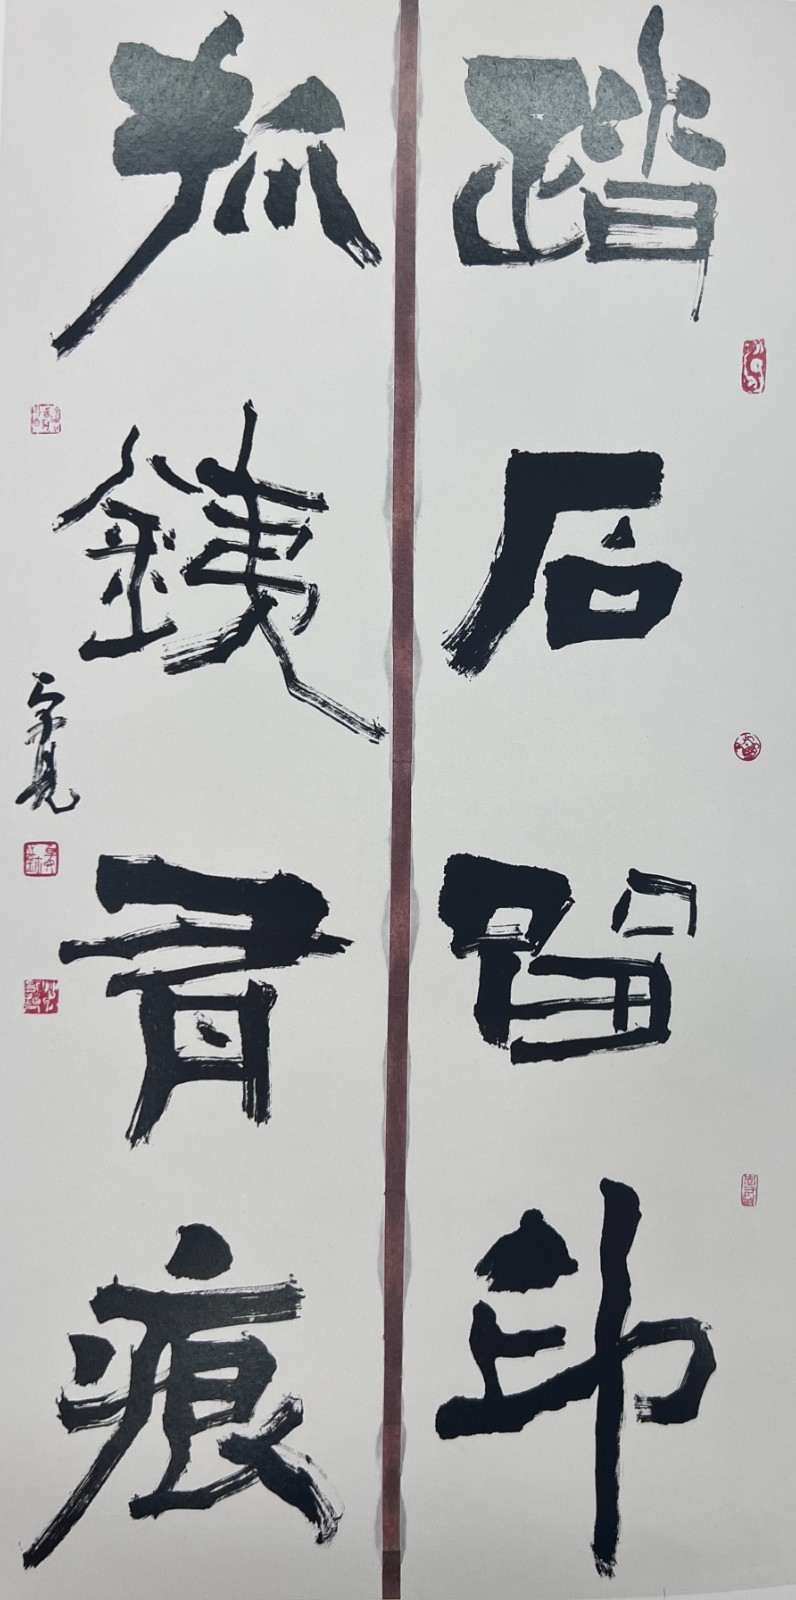 踏石留印
抓銕有痕